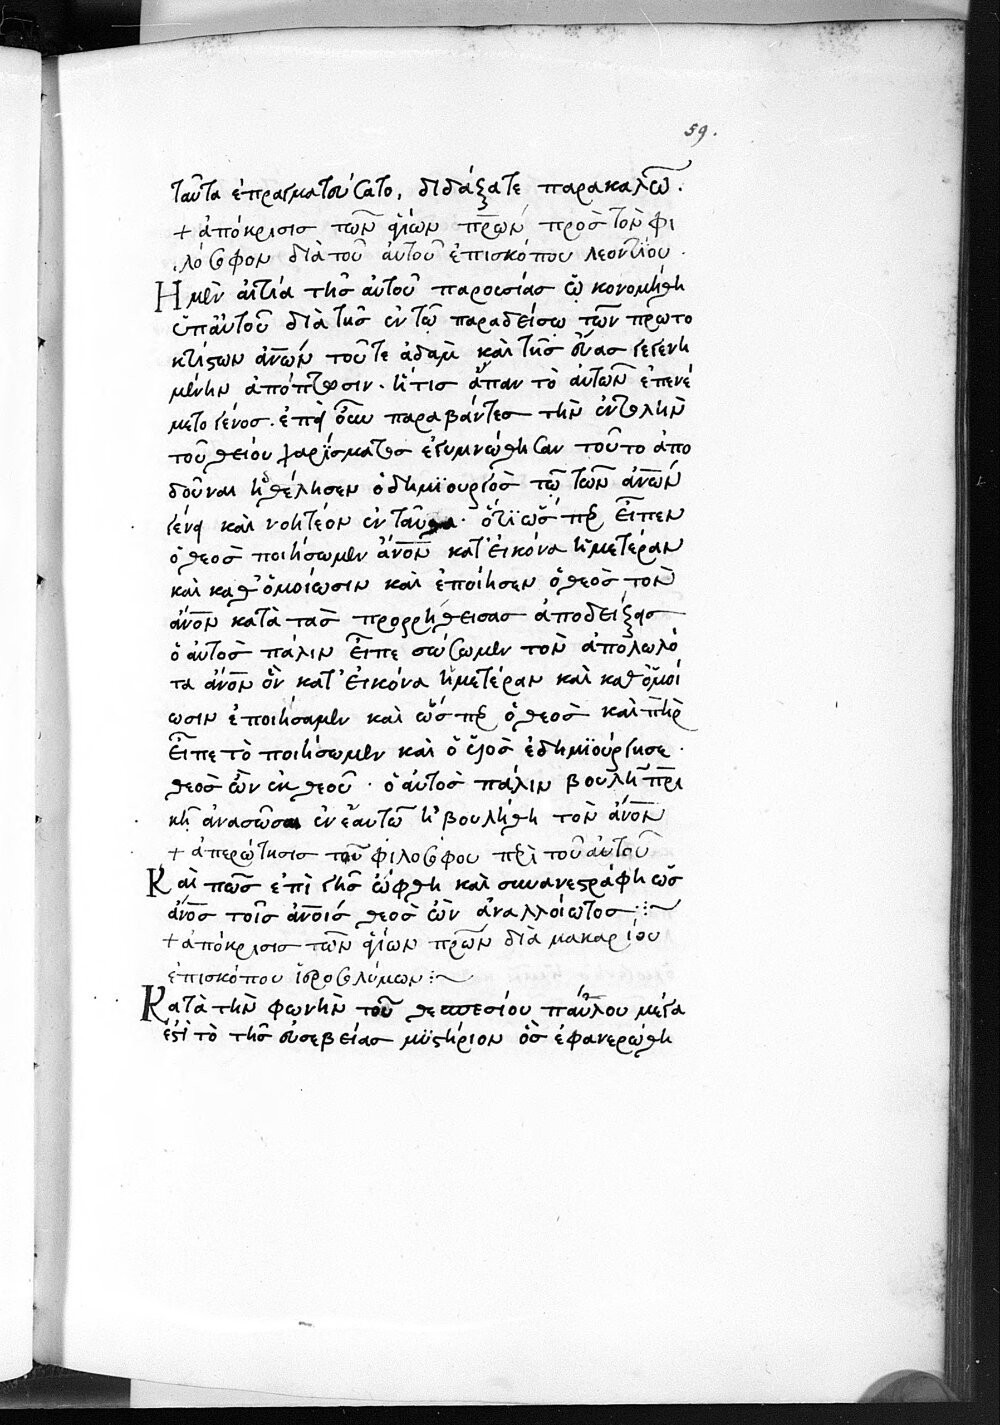 59.
ταῦτα ἐπραγματεύσατο, διδάξατε παρακαλῶ.
+ ἀπόκρισις τῶν ἁγίων πρ̅ων πρὸς τὸν φι
λόσοφον διὰ τοῦ αὐτοῦ ἐπισκόπου λεοντίου.
Ἡ μὲν αἰτία τῆς αὐτοῦ παρουσίας ὠκονομήθη
ὑπ αὐτοῦ διὰ τῆς ἐν τῷ παραδείσῳ τῶν πρωτο
κτίστων ἀν̅ων τοῦτε ἀδὰμ καὶ τῆς εὔας γεγενη
μένην ἀπόπτωσιν. ἥτις ἅπαν τὸ αὐτῶν ἐπενέ
μετο γένος. ἐπεὶ οὖν παραβάντες τὴν ἐντολὴν
τοῦ θείου χαρίσματος ἐγυμνώθησαν τοῦτο ἀπο
δοῦναι ἠθέλησεν ὁ δημϊουργὸς τῷ τῶν ἀν̅ων
γένει καὶ νοητέον ἐνταῦθα. ὅτι ὥσπερ εἶπεν
ὁ θεὸς ποιήσωμεν ἄν̅ον κατ' εἰκόνα ἡμετέραν
καὶ καθ' ὁμοίωσιν καὶ ἐποίησεν ὁ θεὸς τὸν
ἄν̅ον κατὰ τὰς προρρηθείσας ἀποδείξεις
ὁ αὐτὸς πάλιν εἶπε σώσωμεν τὸν ἀπολωλό
τα ἄν̅ον ὃν κατ' εἰκόνα ἡμετέραν καὶ καθ' ὁμοί
ωσιν ἐποιήσαμεν καὶ ὥσπερ ὁ θεὸς καὶ π̅ηρ
εἶπε τὸ ποιήσωμεν καὶ ὁ υἱὸς ἐδημϊούργησε.
θεὸς ὢν ἐκ θεοῦ. ὁ αὐτὸς πάλιν βουλῇ π̅ρι
κῇ ἀνασῶσαι ἐν ἑαυτῷ ἠβουλήθη τὸν ἄν̅ον
+ ἀπερώτησις τοῦ φιλοσόφου περὶ τοῦ αὐτοῦ
Καὶ πῶς ἐπὶ γῆς ὤφθη καὶ συνανεστράφη ὡς
ἄν̅ος τοῖς ἀν̅οις θεὸς ὢν ἀναλλοίωτος
+ ἀπόκρισις τῶν ἁγίων πρ̅ων διὰ μακαρίου
ἐπισκόπου ἱεροσολύμων
Κατὰ τὴν φωνὴν τοῦ θεσπεσίου παύλου μέγα
ἐστὶ τὸ τῆς εὐσεβείας μϋστήριον ὃς ἐφανερώθη